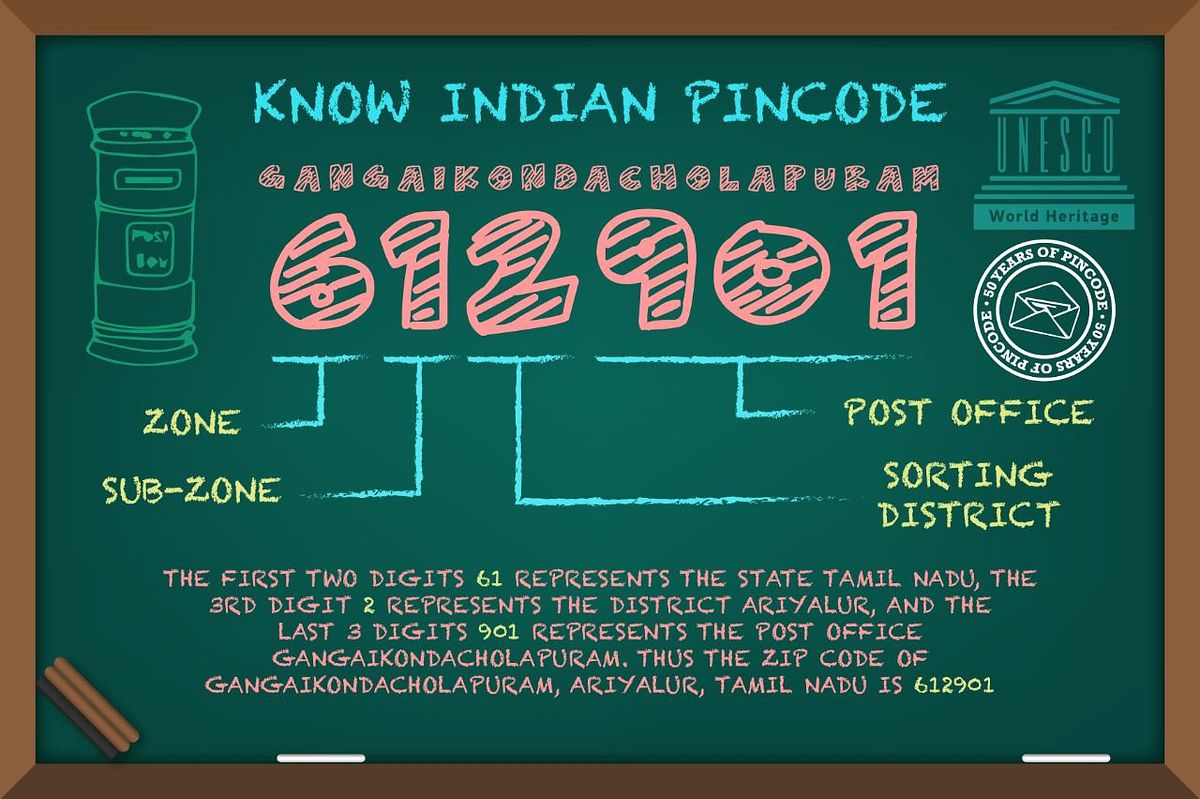 KNOW INDIAN PINCODE
GANGAIKONDACHOLAPURAM
612901
UNESCO
World Heritage
50 YEARS OF PINCODE · 50 YEARS OF PINCODE ·
POST
BOX
ZONE
POST OFFICE
SUB-ZONE
SORTING
DISTRICT
THE FIRST TWO DIGITS 61 REPRESENTS THE STATE TAMIL NADU, THE
3RD DIGIT 2 REPRESENTS THE DISTRICT ARIYALUR, AND THE
LAST 3 DIGITS 901 REPRESENTS THE POST OFFICE
GANGAIKONDACHOLAPURAM. THUS THE ZIP CODE OF
GANGAIKONDACHOLAPURAM, ARIYALUR, TAMIL NADU IS 612901